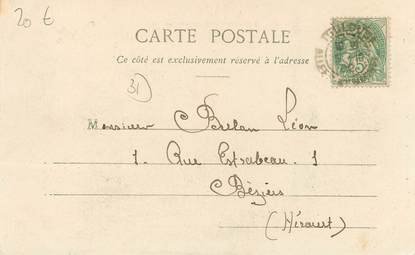 20 €
CARTE POSTALE
Ce côté est exclusivement réservé à l'adresse
31
Monsieur Léon
1. Rue 1
Béziers
(Hérault)